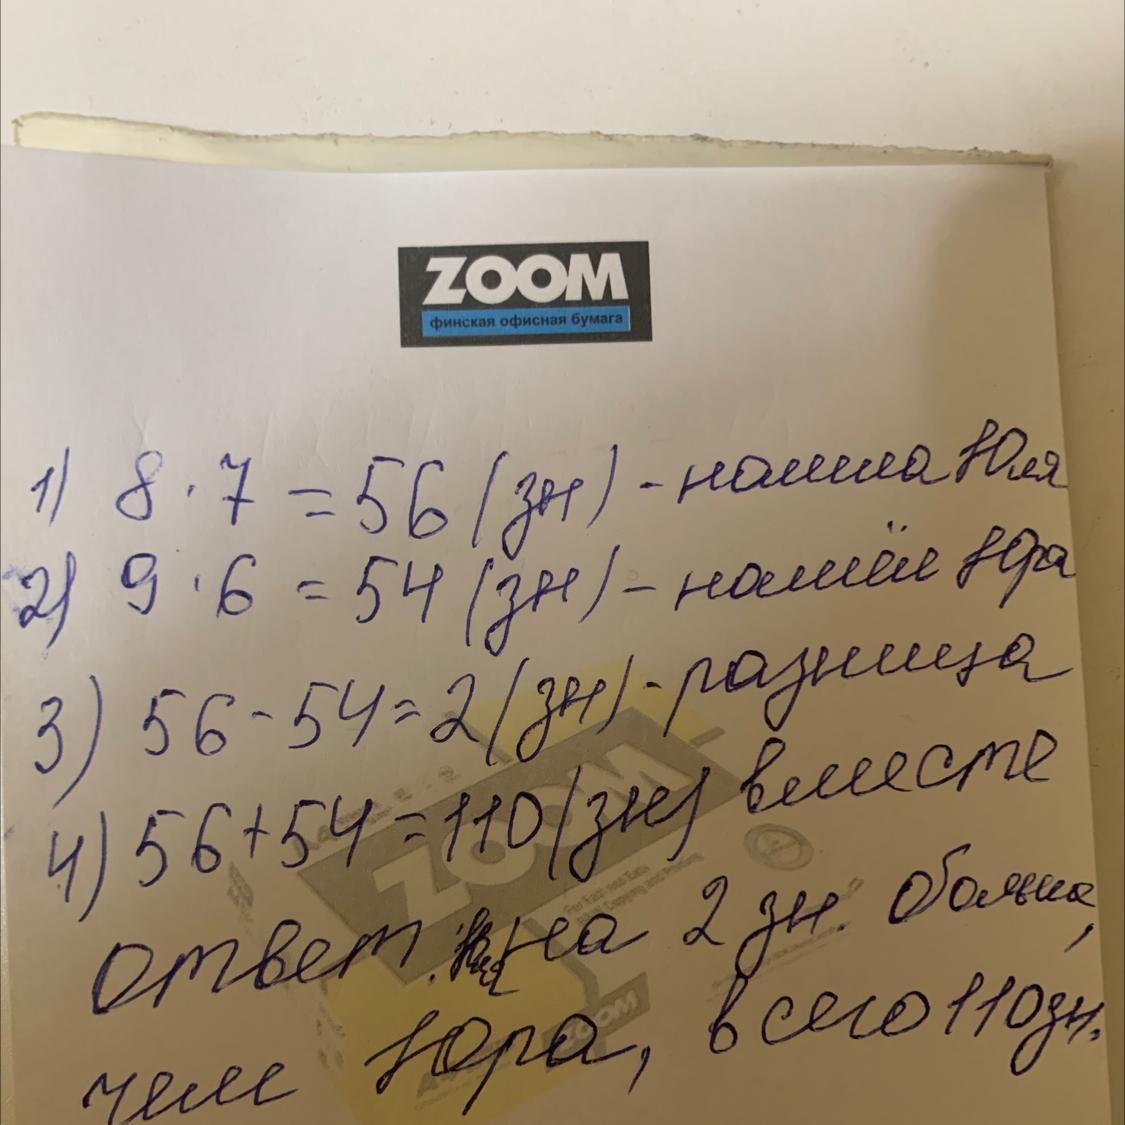 ZOOM
финская офисная бумага
1) 8 · 7 = 56 (зн) - нашла Юля
2) 9 · 6 = 54 (зн) - нашёл Юра
3) 56 - 54 = 2 (зн) - разница
4) 56 + 54 = 110 (зн) вместе
ZOOM
Ответ: на 2 зн. больше,
ZOOM
чем Юра, всего 110 зн.